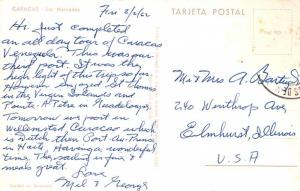 CARACAS - Las Mercedes
TARJETA POSTAL
Hi. Just completed
an all day tour of Caracas
Venezuela. This was our
third port. It was the
high light of this trip so far.
However enjoyed St Thomas
in the Virgin Islands and
Pointe-A-Pitre in Guadeloupe.
Tomorrow we port in
Willemstad, Curacao which
is Dutch then Port-Au-Prince
in Haiti. Having a wonderful
time. The sailing is fine &
meals great.
Love
Mil & George
Mr & Mrs A.
240 Winthrop Ave
Elmhurst, Illinois
U.S.A